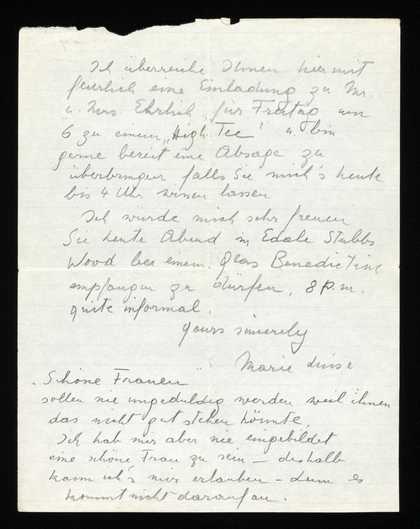 Ich überreiche Ihnen hiermit
feierlich eine Einladung zu Mr.
u. Mrs Ehrlich, für Freitag um
6 zu einem „High Tee“ u bin
gerne bereit eine Absage zu
überbringen falls Sie mich's heute
bis 4 Uhr wissen lassen
Ich würde mich sehr freuen
Sie heute Abend in Edale Stubbs
Wood bei einem Glas Benedictine
empfangen zu dürfen, 8 p.m.
quite informal.
yours sincerely
Marie
„Schöne Frauen“
sollen nie ungeduldig werden weil ihnen
das nicht gut stehen könnte.
Ich hab mir aber nie eingebildet
eine schöne Frau zu sein – deshalb
kann ich's mir erlauben – denn es
kommt nicht darauf an.